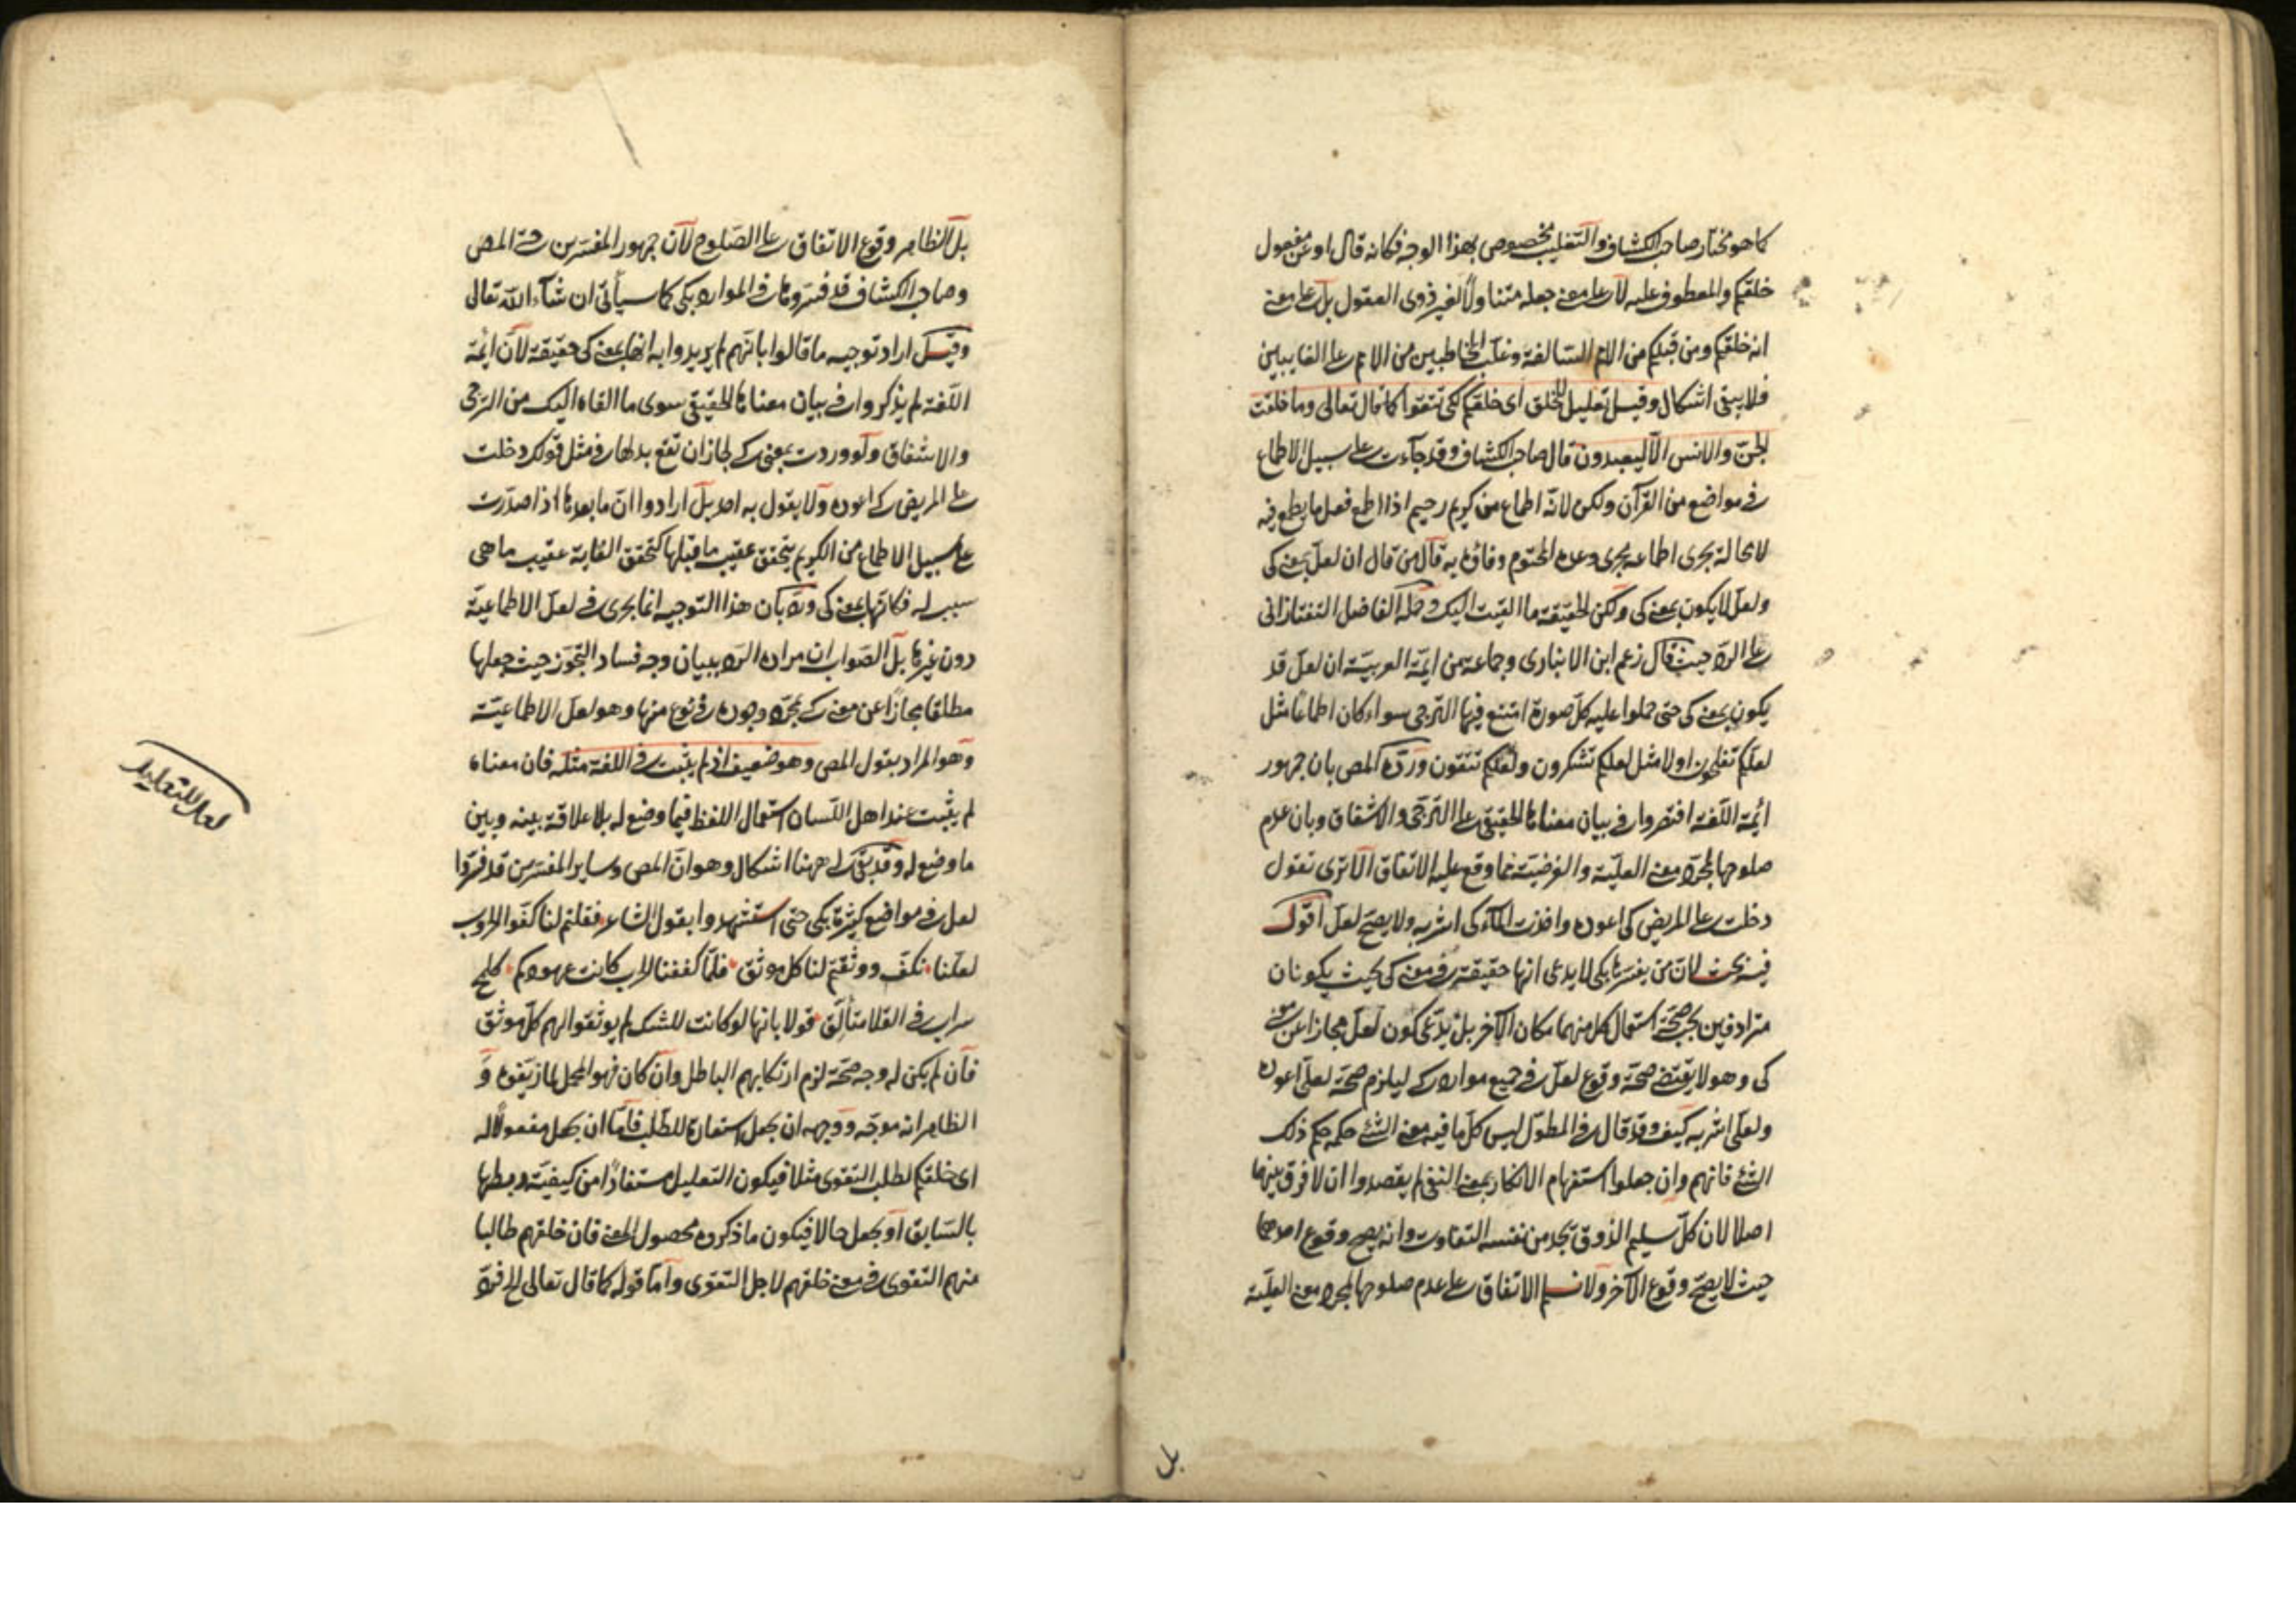 كما هو مختار صاحب الكشاف والتغليب مخصوص بهذا الوجه فكانه قال او عن مفعول
خلقكم والمعطوف عليه لا على معنى جعله متناولا لغير ذوى العقول بل على معنى
انه خلقكم ومن قبلكم من الامم السالفة وغلب المخاطبين من الامم على الغايبين
فلا يبقى اشكال وقيل تعليل للخلق اى خلقكم لكى تتقوا كما قال تعالى وما خلقت
الجن والانس الا ليعبدون قال صاحب الكشاف وقد جاءت على سبيل الاطماع
فى مواضع من القرآن ولكن لانه اطماع من كريم رحيم اذا اطمع فعل ما يطمع فيه
لا محالة بجرى اطماعه مجرى وعده المحتوم وفاؤه به قال من قال ان لعل بمعنى كى
ولعل لا يكون بمعنى كى ولكن الحقيقة ما القيت اليك وحمله الفاضل التفتازانى
على الرد حيث قال زعم ابن الانبارى وجماعة من ايمة العربية ان لعل قد
يكون بمعنى كى حتى حملوا عليه كل صورة امتنع فيها الترجى سواء كان اطماعا مثل
لعلكم تفلحون اولا مثل لعلكم تشكرون ولعلكم تتقون ورده المص بان جمهور
أئمة اللغة اقتصروا فى بيان معناها الحقيقى على الترجى والاشفاق وبان عدم
صلوحها لمجرد معنى العلية والغرضية مما وقع عليه الاتفاق الا ترى تقول
دخلت على المريض كى اعوده واخذت الماء كى اشربه ولا يصح لعل اقول
فيه بحث لان من يفسرها بكى لا يدعى انها حقيقة فى معنى كى بحيث يكونان
مترادفين يجب صحة استعمال كل منهما مكان الآخر بل يدعى كون لعل مجازا عن معنى
كى وهو لا يقتضى صحة وقوع لعل فى جميع موارد كى ليلزم صحة لعلى اعوده
ولعلى اشربه كيف وقد قال فى المطول ليس كل ما فيه معنى الشئ حكمه حكم ذلك
الشئ فانهم وان جعلوا استفهام الانكار بمعنى النفى لم يقصدوا ان لا فرق بينهما
اصلا لان كل سليم الذوق يجد من نفسه التفاوت وانه يصح وقوع احدهما
حيث لا يصح وقوع الآخر ولا نسلم الاتفاق على عدم صلوحها لمجرد معنى العلية
بل
بل الظاهر وقوع الاتفاق على الصلوح لان جمهور المفسرين حتى المص
وصاحب الكشاف قد فسروها فى الموارد بكى كما سيأتى ان شاء الله تعالى
وقيل اراد توجيه ما قالوا بانهم لم يريدوا به انها بمعنى كى حقيقة لان ائمة
اللغة لم يذكروا فى بيان معناها الحقيقى سوى ما القاه اليك من الترجى
والاشفاق ولو وردت بمعنى كى لجاز ان تقع بدلها فى مثل قولك دخلت
على المريض كى اعوده ولا يقول به احد بل ارادوا ان ما بعدها اذا صدرت
على سبيل الاطماع من الكريم يتحقق عقيب ما قبلها كتحقق الغاية عقيب ما هى
سبب له فكانها بمعنى كى ورد بان هذا التوجيه انما يجرى فى لعل الاطماعية
دون غيرها بل الصواب ان مراده الرد ببيان وجه فساد التجوز حيث جعلها
مطلقا مجازا عن معنى كى بمجرد وجوده فى نوع منها وهو لعل الاطماعية
وهو المراد بقول المص وهو ضعيف اذ لم يثبت فى اللغة مثله فان معناه
لم يثبت عند اهل اللسان استعمال اللفظ فيما وضع له بلا علاقة بينه وبين
ما وضع له وقد بقى لى ههنا اشكال وهو ان المص وساير المفسرين قد فسروا
لعل فى مواضع كثيرة بكى حتى استشهدوا بقول الشاعر فقلتم لنا كفوا الحروب
لعلنا نكف ووثقتم لنا كل موثق فلما كففنا الحرب كانت عهودكم كلمح
سراب فى الفلا متألق قولا بانها لو كانت للشك لم يوثقوا لهم كل موثق
فان لم يكن له وجه صحة لزم ارتكابهم الباطل وان كان فهو المحل لما زيفوه و
الظاهر انه موجه ووجهه ان يجعل استعارة للطلب فاما ان يجعل مفعولا له
اى خلقكم لطلب التقوى مثلا فيكون التعليل مستفادا من كيفية ربطها
بالسابق او يجعل حالا فيكون ما ذكروه محصول المعنى فان خلقهم طالبا
منهم التقوى فى معنى خلقهم لاجل التقوى واما قوله كما قال تعالى الخ
لعل للتعليل